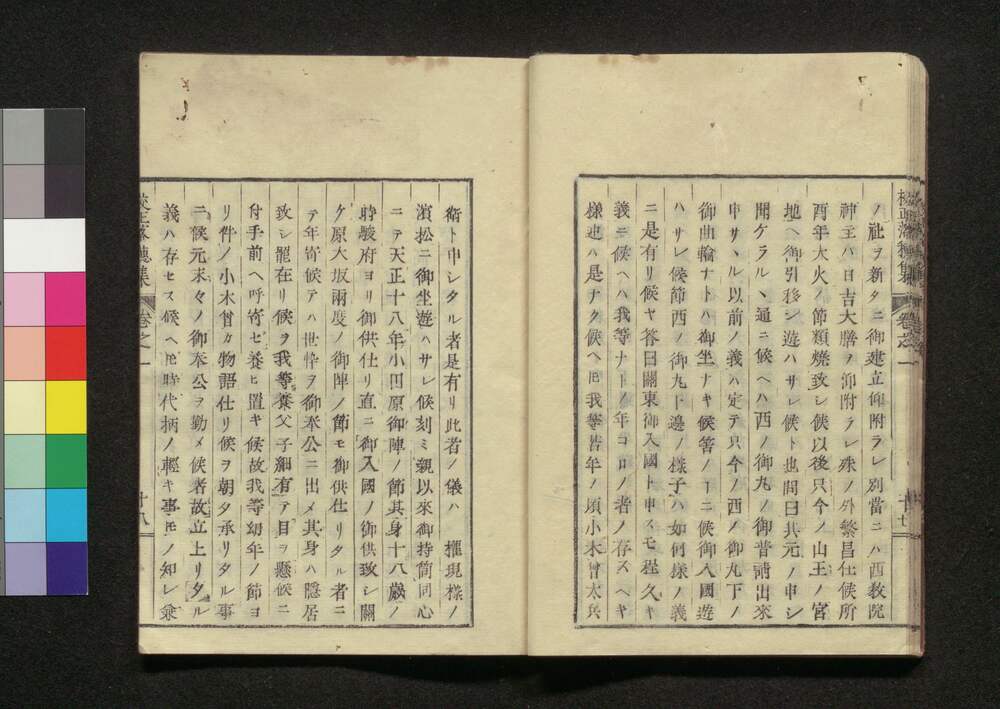 ノ社ヲ新タニ御建立仰附ラレ別當ニハ西教院
神主ハ日吉大膳ノ仰附ラレ殊ノ外繁昌仕候所
酉年大火ノ節類燒致シ候以後只今ノ山王ノ宮
地ヘ御引移シ遊ハサレ候ト也問曰其元ノ申シ
聞ケラルヽ通ニ候ヘハ西ノ御丸ノ御普請出來
申サヽル以前ノ義ハ定テ只今ノ西ノ御丸下ノ
御曲輪ナトハ御坐ナキ候筈ノーニ候御入國遊
ハサレ候節西ノ御丸下邊ノ樣子ハ如何樣ノ義
ニ是有リ候ヤ答曰關東御入國ト申スモ程久キ
義ニ候ヘハ我等ナトノ年コロノ者ノ存スヘキ
樣迚ハ是ナク候ヘ𪜈我等若年ノ頃小木曾太兵
校正落穗集 卷之一 十七
衞ト申シタル者是有リ此者ノ儀ハ 權現樣ノ
濱松ニ御坐遊ハサレ候刻ミ親以來御持筒同心
ニテ天正十八年小田原御陣ノ節其身十八歲ノ
時駿府ヨリ御供仕リ直ニ御入國ノ御供致シ關
ケ原大坂兩度ノ御陣ノ節モ御供仕リタル者ニ
テ年寄候テハ世悴ヲ御奉公ニ出メ其身ハ隱居
致シ罷在リ候ヲ我等養父子細有テ目ヲ懸候ニ
付手前ヘ呼寄セ養ヒ置キ候故我等幼年ノ節ヨ
リ件ノ小木曾カ物語仕リ候ヲ朝夕承リタル事
ニ候元末々ノ御奉公ヲ勤メ候者故立上リタル
義ハ存セス候ヘ𪜈時代柄ノ輕キ事𪜈ノ知レ兼
校正落穗集 卷之一 十八